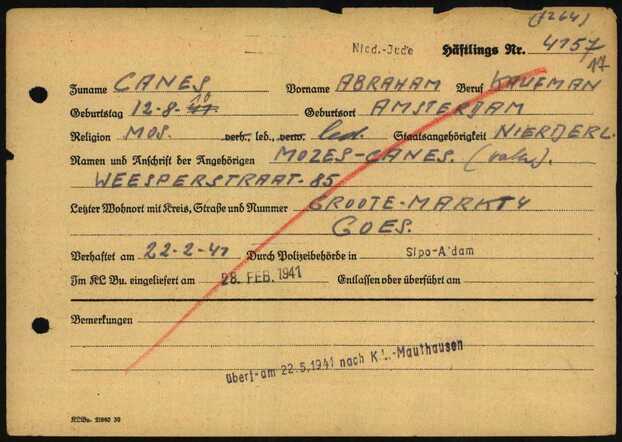 (7264)
Nied.-Jude Häftlings Nr. 4157/
17
Zuname CANES Vorname ABRAHAM Beruf KAUFMAN
Geburtstag 12-8-10 Geburtsort AMSTERDAM
Religion MOS. verh., led., verw. led. Staatsangehörigkeit NIERDERL.
Namen und Anschrift der Angehörigen MOZES-CANES. (vater).
WEESPERSTRAAT-85
Letzter Wohnort mit Kreis, Straße und Nummer GROOTE-MARKT 4
GOES.
Verhaftet am 22-2-41 Durch Polizeibehörde in Sipo-A'dam
Im KL Bu. eingeliefert am 28. FEB. 1941 Entlassen oder überführt am
Bemerkungen
überf. am 22.5.1941 nach KL.-Mauthausen
KLBu.